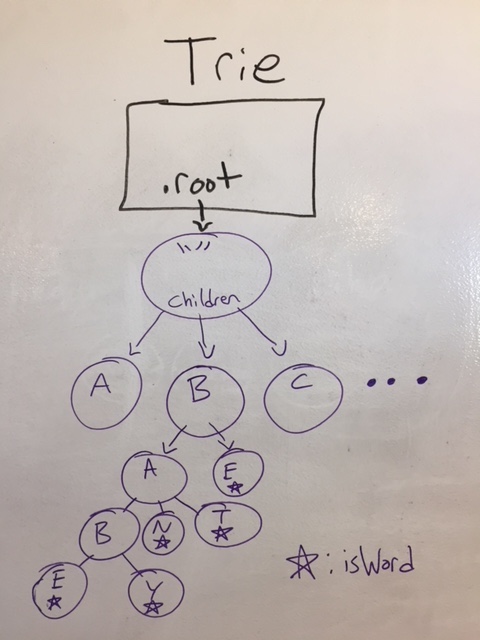 Trie
.root
" "
children
A B C ...
A E
B N T
E Y
: isWord